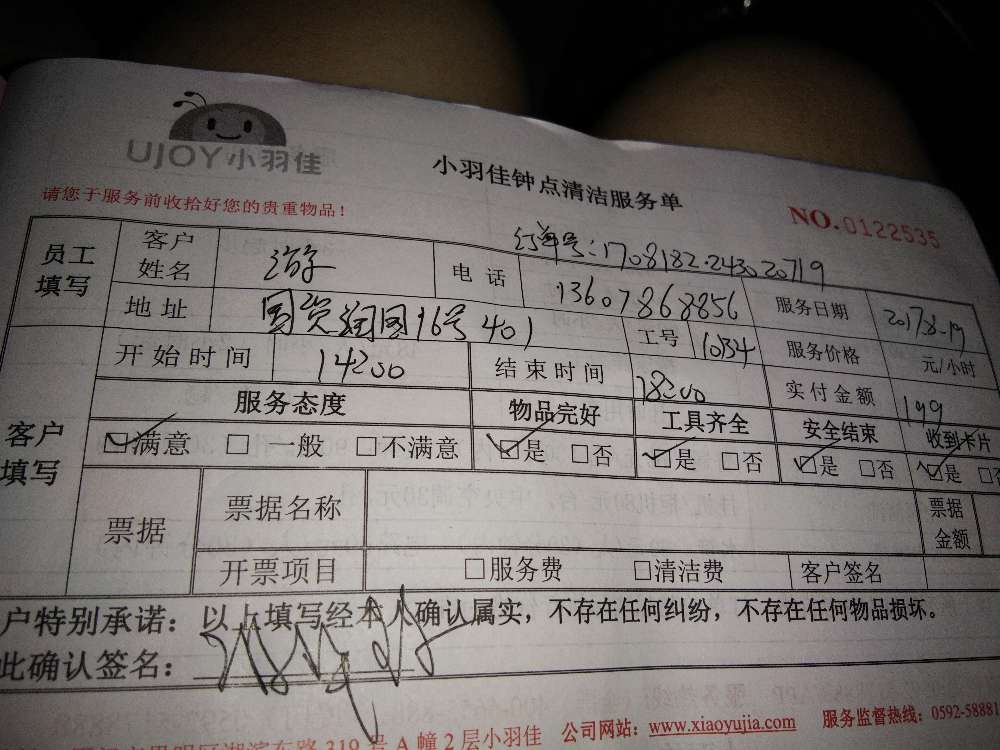 UJOY小羽佳
小羽佳钟点清洁服务单
请您于服务前收拾好您的贵重物品！
NO.0122535
订单号：1708182243020719
员工填写 客户姓名 游 电话 13607868856 服务日期 2017.8.19
地址 国贸润园16号401 工号 10334 服务价格 元/小时
开始时间 14:00 结束时间 18:00 实付金额 199
客户填写 服务态度 物品完好 工具齐全 安全结束 收到卡片
☑满意 □一般 □不满意 ☑是 □否 ☑是 □否 ☑是 □否 ☑是 □否
票据 票据名称 票据金额
开票项目 □服务费 □清洁费 客户签名
户特别承诺：以上填写经本人确认属实，不存在任何纠纷，不存在任何物品损坏。
此确认签名：
湖滨东路319号A幢2层小羽佳 公司网站：www.xiaoyujia.com 服务监督热线：0592-58881